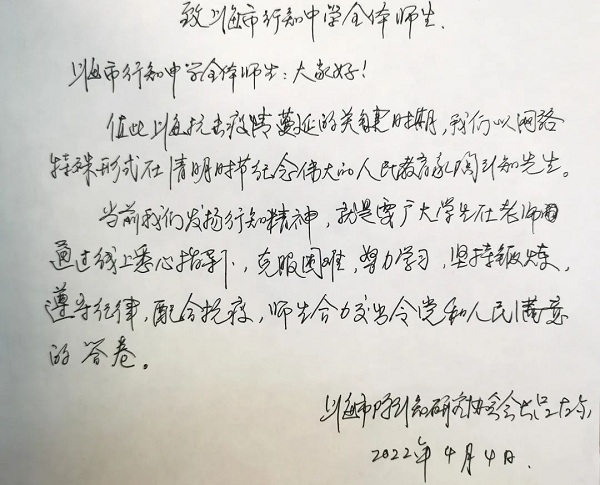 致上海市行知中学全体师生.
上海市行知中学全体师生：大家好！
值此上海抗击疫情蔓延的关键时期,我们以网络
特殊形式在清明时节纪念伟大的人民教育家陶行知先生。
当前我们发扬行知精神，就是要广大学生在老师
通过线上悉心指导下，克服困难，努力学习，坚持锻炼，
遵守纪律，配合抗疫，师生合力交出令党和人民满意
的答卷。
上海市陶行知研究协会会长
2022年4月4日.